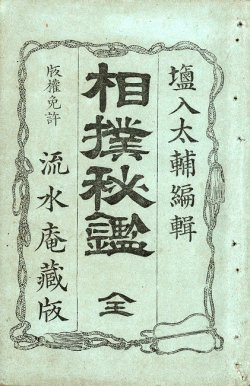 鹽入太輔編輯
相撲秘鑑 全
版權免許
流水庵藏版